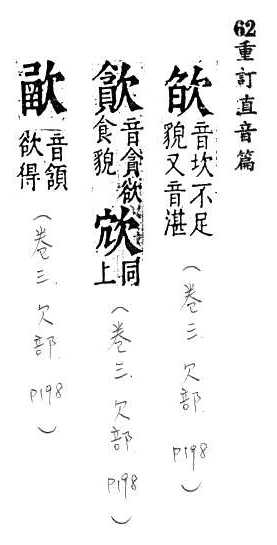 62重訂直音篇
欿音坎不足貌又音湛（卷三.欠部.P198）
音貪欲食貌 同上（卷三.欠部.P198）
音頷欲得（卷三.欠部.P198）